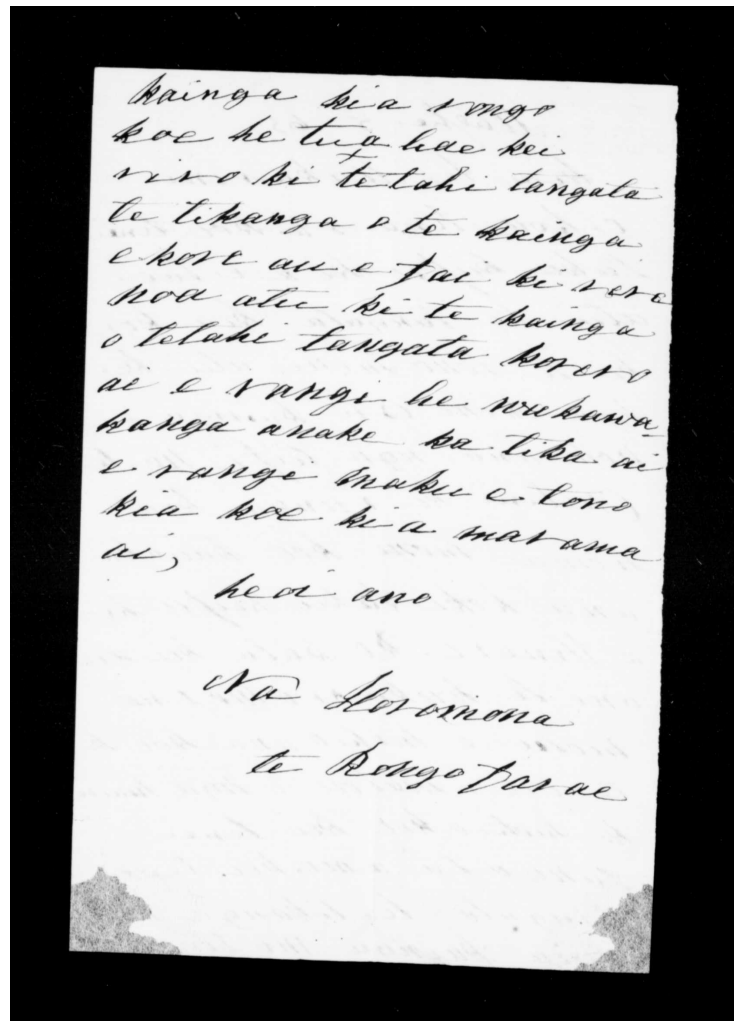 kainga kia rongo
koe he tua hae kei
riro ki te tahi tangata
te tikanga o te kainga
e kore au e pai ki rere
noa atu ki te kainga
o te tahi tangata korero
ai e rangi he wakawa-
kanga anake ka tika ai
e rangi maku e tono
kia koe kia marama
ai,
heoi ano
Na Horomona
te Rongo parae